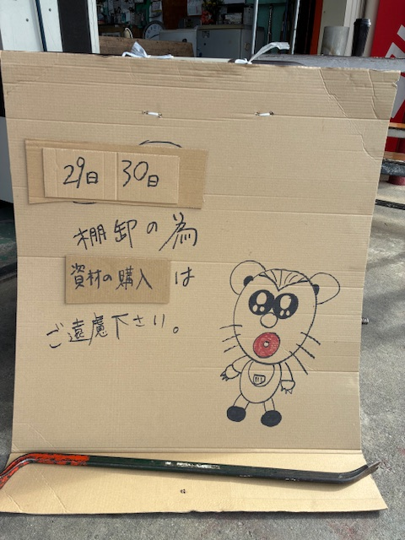 29日 30日
棚卸の為
資材の購入 は
ご遠慮下さい。